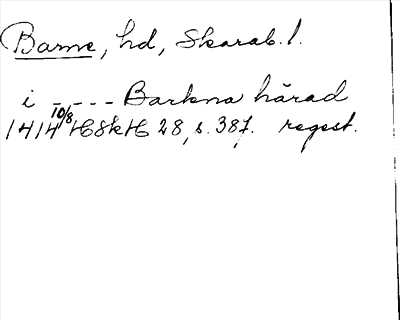 Barne, hd, Skarab. l.
i - - - - Barkna härad
1414 10/8 HSkH 28, s. 387. regest.